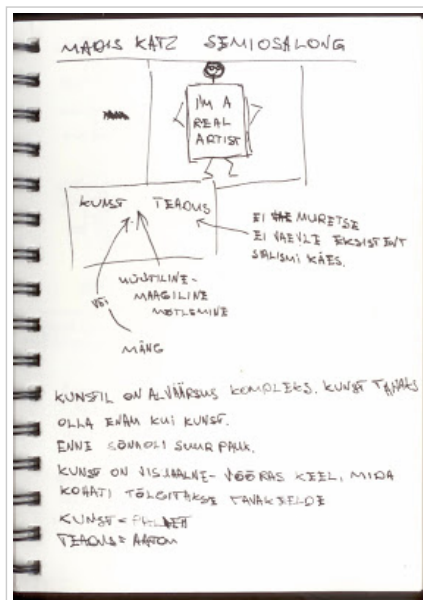 MADIS KATZ SEMIOSALONG
I'M A
REAL
ARTIST
KUNST TEADUS
EI MURETSE
EI VAEVLE EKSISTENT
SIALISMI KÄES.
MÜÜTILINE-
MAAGILINE
MÕTLEMINE
VÕI
MÄNG
KUNSTIL ON ALVÄÄRSUS KOMPLEKS. KUNST TAHAKS
OLLA ENAM KUI KUNST.
ENNE SÕNA OLI SUUR PAUK.
KUNST ON VISUAALNE - VÕÕRAS KEEL, MIDA
KOHATI TÕLGITAKSE TAVAKEELDE
KUNST =
TEADUS = AATOM